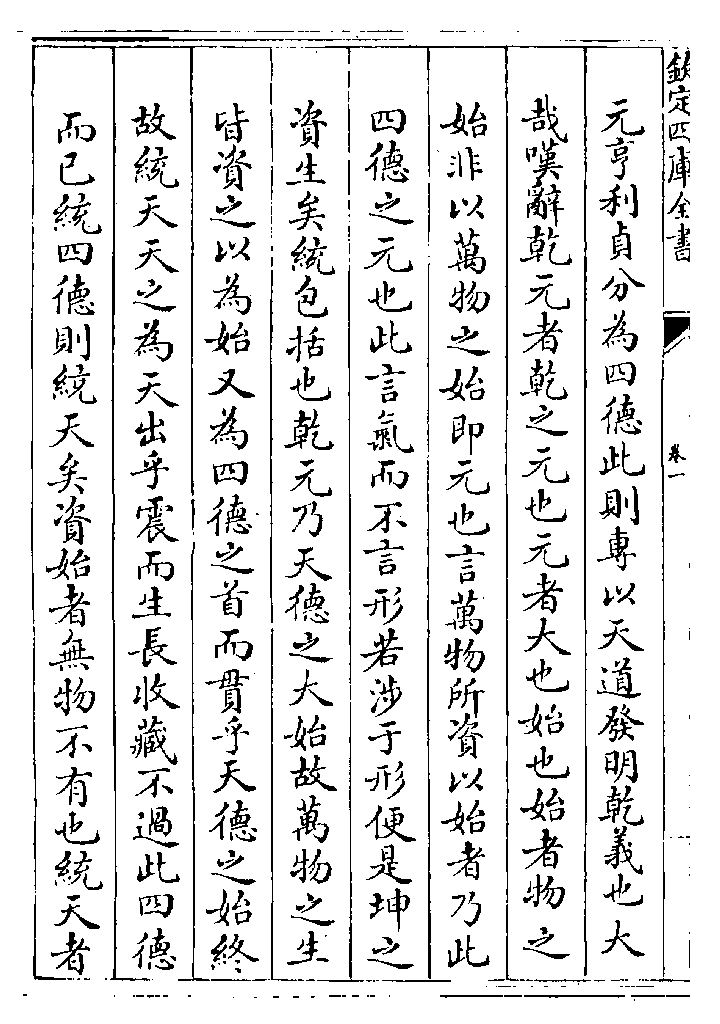 欽定四庫全書
卷一
元亨利貞分為四德此則專以天道發明乾義也大
哉嘆辭乾元者乾之元也元者大也始也始者物之
始非以萬物之始即元也言萬物所資以始者乃此
四德之元也此言氣而不言形若涉于形便是坤之
資生矣統包括也乾元乃天德之大始故萬物之生
皆資之以為始又為四德之首而貫乎天德之始終
故統天天之為天出乎震而生長收藏不過此四德
而已統四德則統天矣資始者無物不有也統天者